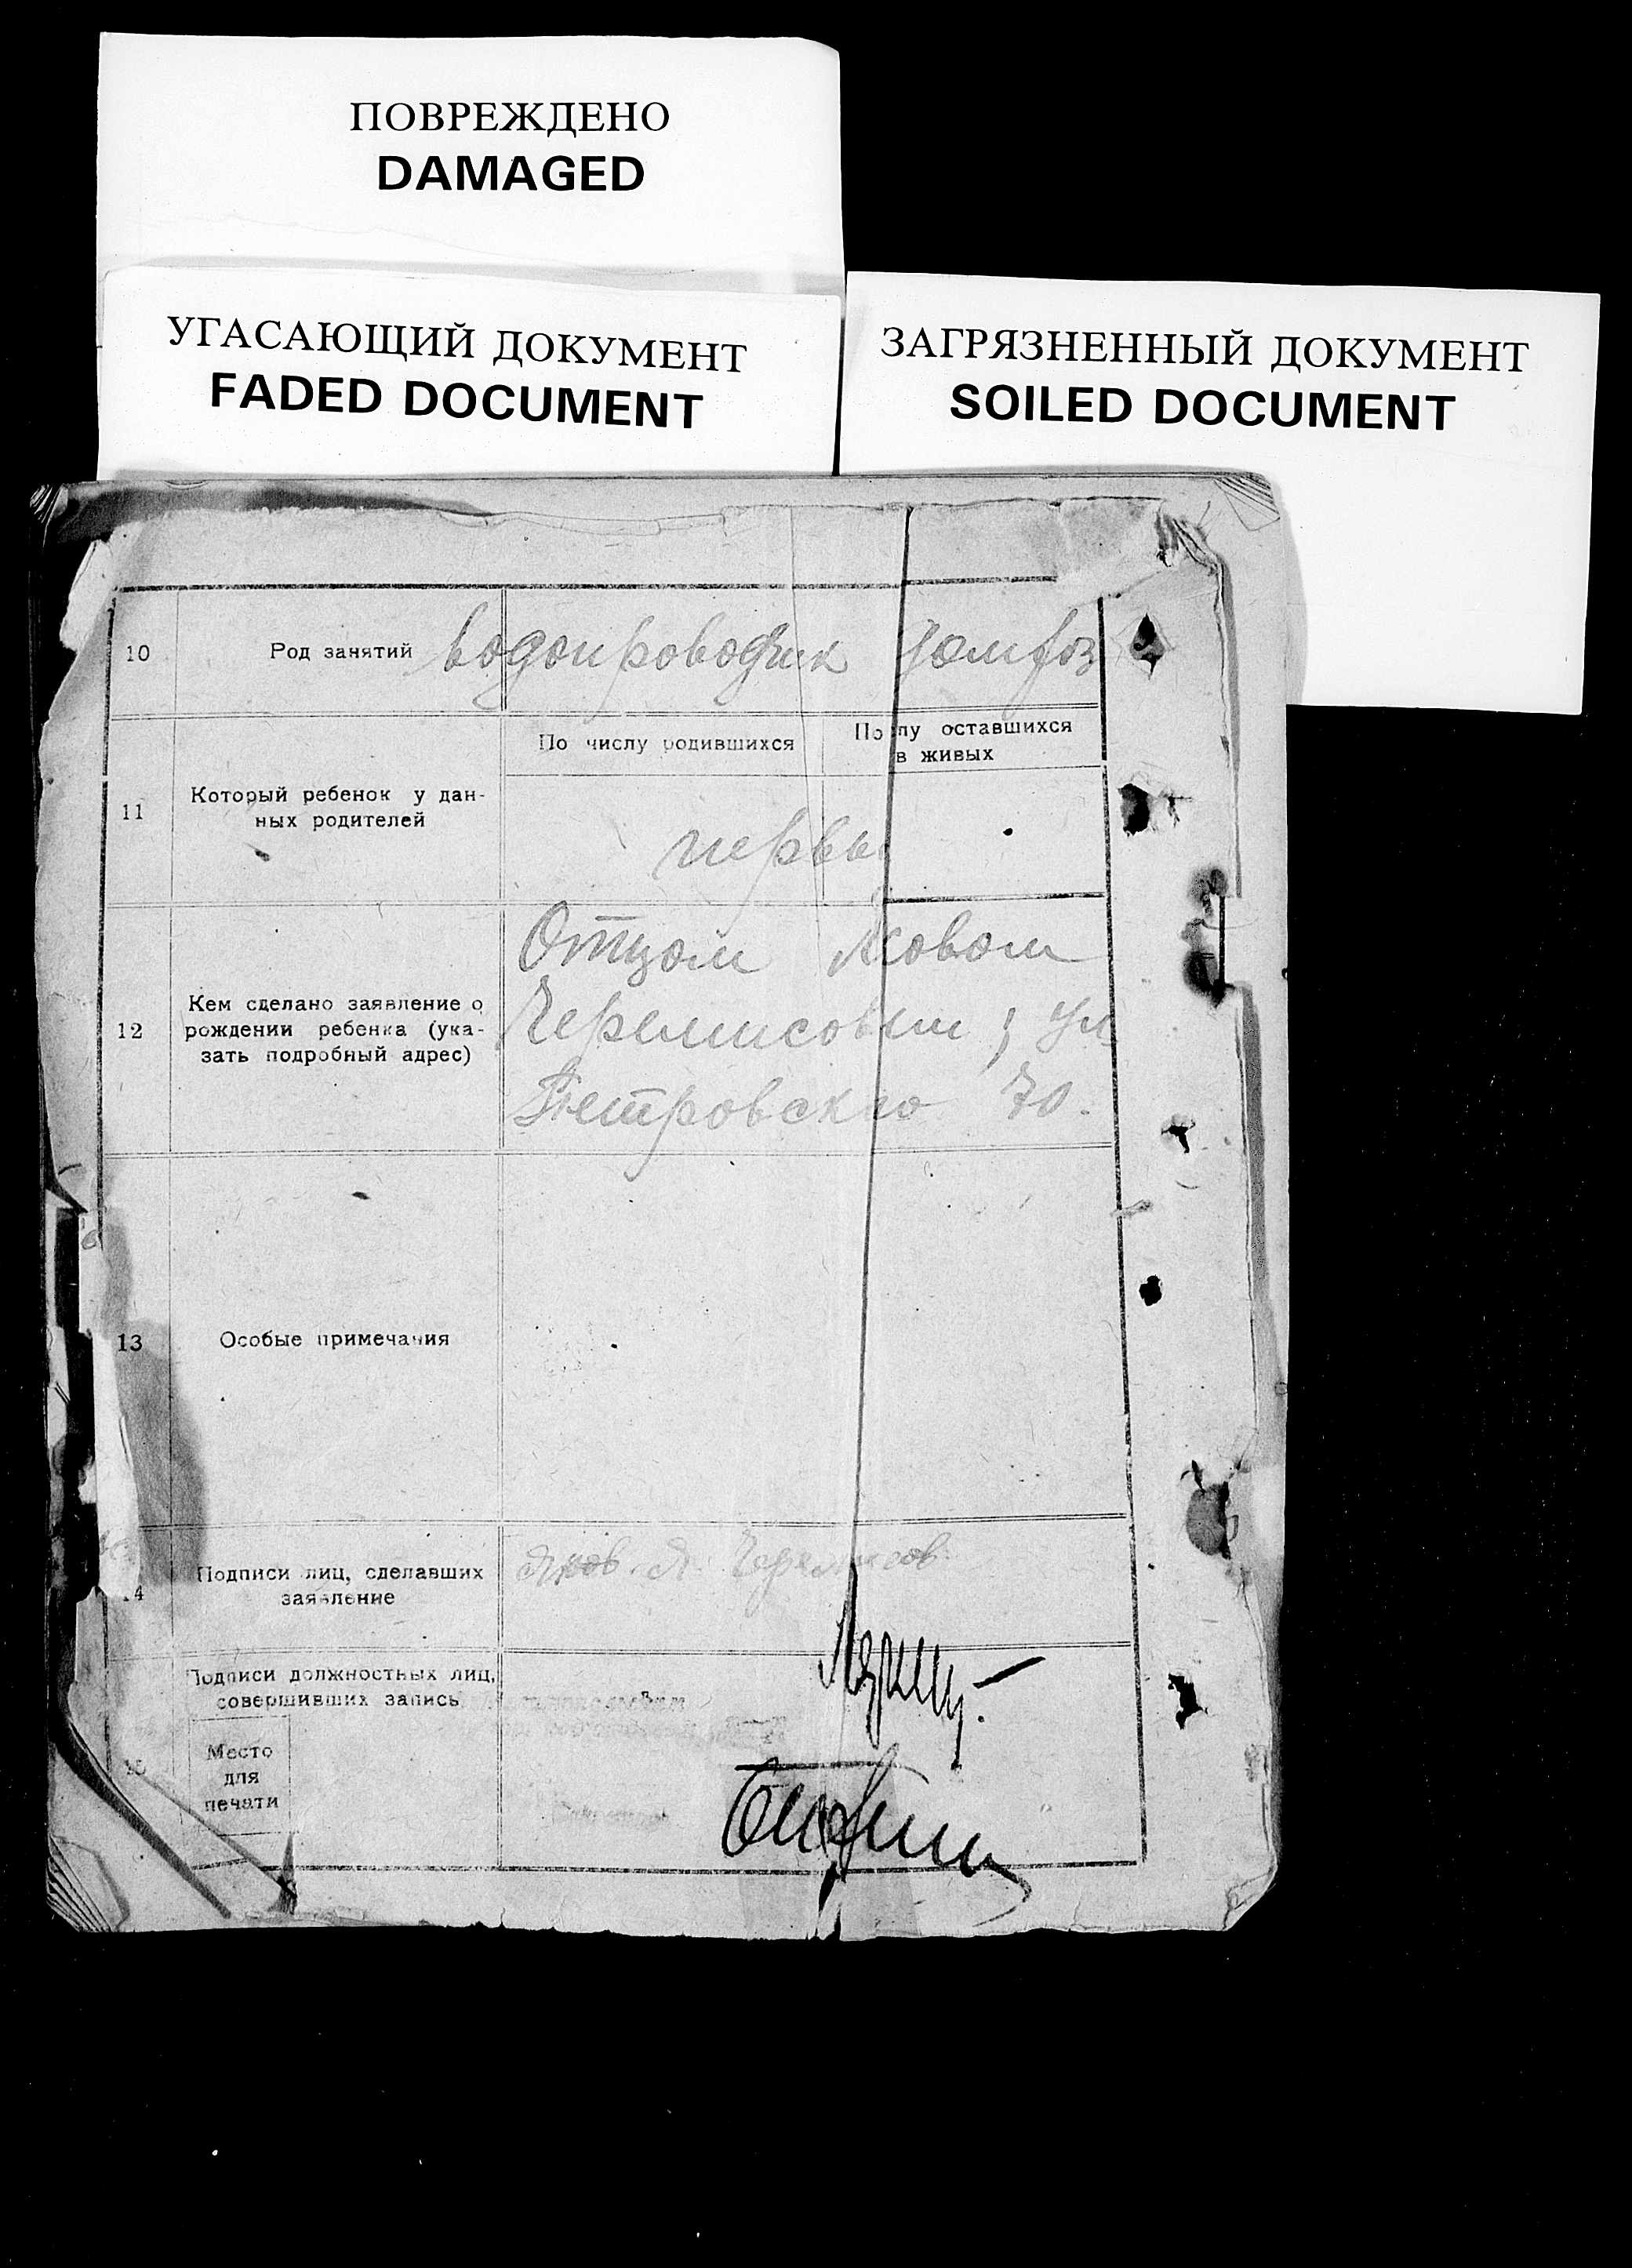 ПОВРЕЖДЕНО
DAMAGED
УГАСАЮЩИЙ ДОКУМЕНТ
FADED DOCUMENT
ЗАГРЯЗНЕННЫЙ ДОКУМЕНТ
SOILED DOCUMENT
10 Род занятий водопроводчик
11 Который ребенок у дан-
ных родителей
По числу родившихся
По лу оставшихся
в живых
первы
12 Кем сделано заявление о
рождении ребенка (ука-
зать подробный адрес)
Отцом Яковом
Черемисовым; ул
Петровского 70.
13 Особые примечания
14 Подписи лиц, сделавших
заявление
Яков Я. Черемисов
15 Подписи должностных лиц,
совершивших запись
Место
для
печати